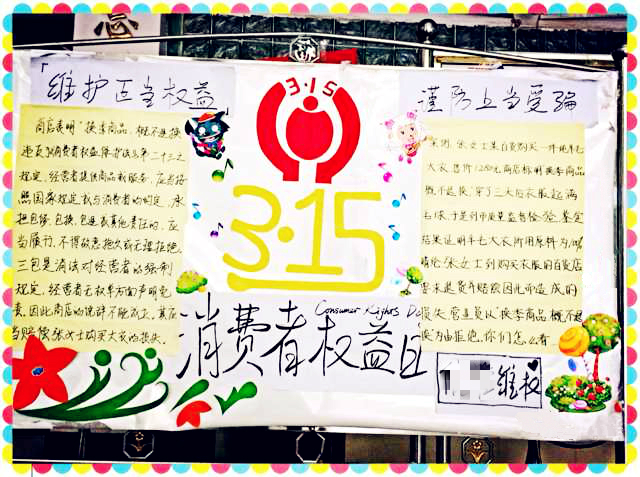 「维护正当权益」
谨防上当受骗
3·15
3·15
Consumer Rights Da
消费者权益日
商店表明"换季商品，概不退换
违反消费者权益保护法第二十三之
规定，经营者提供商品或服务，应当按
照国家规定或与消费者的约定，承
担包修，包换，包退或其他责任的，应
当履行，不得故意拖欠或无理拒绝。
三包是消法对经营者的强制
规定，经营者无权单方面声明免
责。因此商店的说辞不能成立，其应
当赔偿张女士购买大衣的损失。
案例：张女士某百货购买一件羊毛
大衣售价1280元商店标明换季商品
概不退换，穿了三天后衣服起满
毛球，于是到市质量监督检验鉴定
结果证明羊毛大衣所用原料为100%
睛纶张女士到购买衣服的百货店
要求退货并赔偿因此而造成的
损失，营业员以"换季商品，概不退
换"为由拒绝。你们怎么看
维权